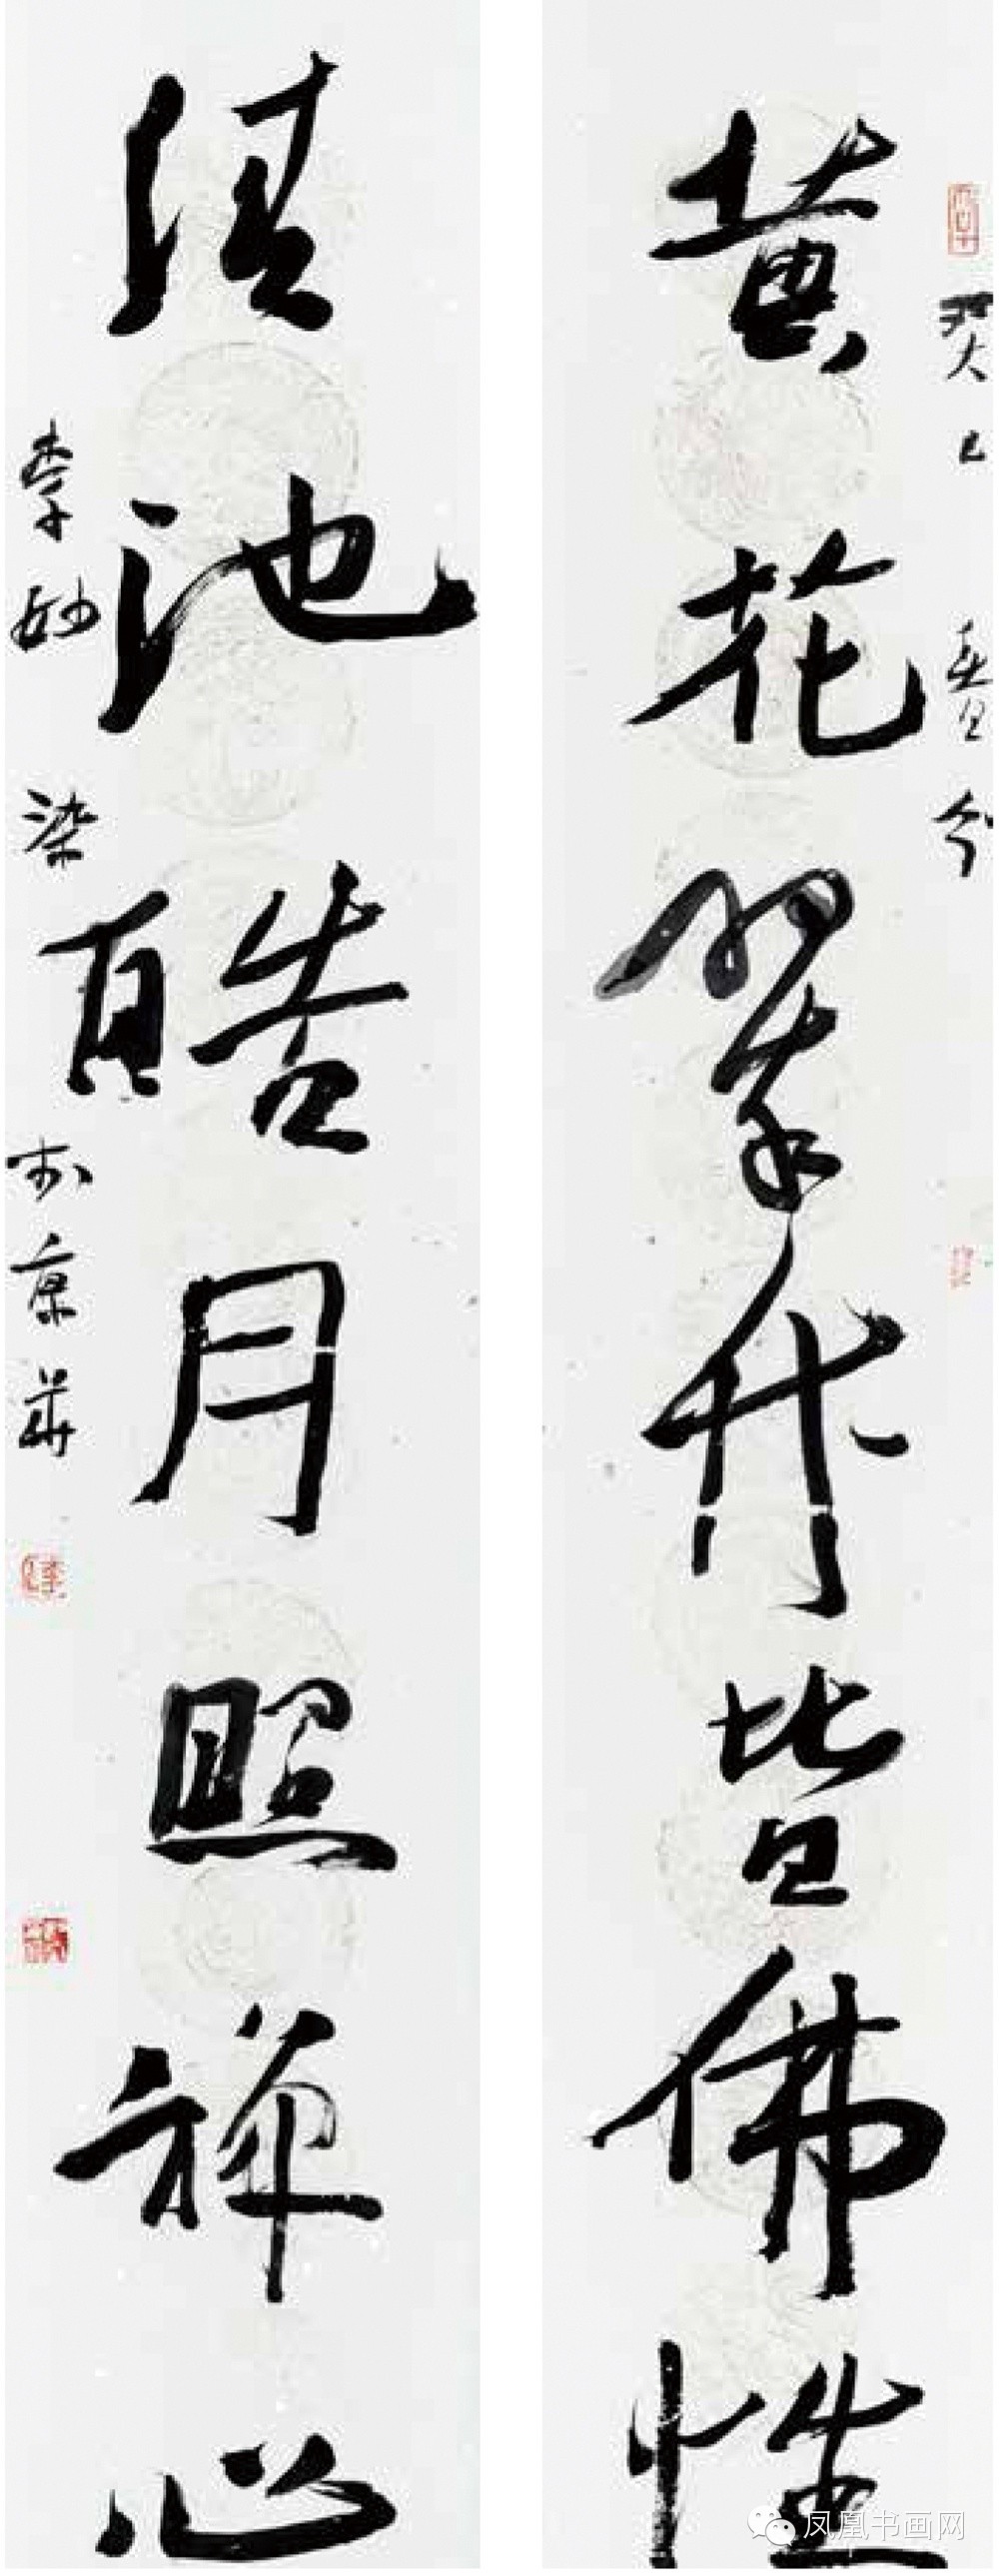 黄花翠竹皆佛性
清池皓月照禅心
癸巳
春分
李妙染
于京华
凤凰书画网